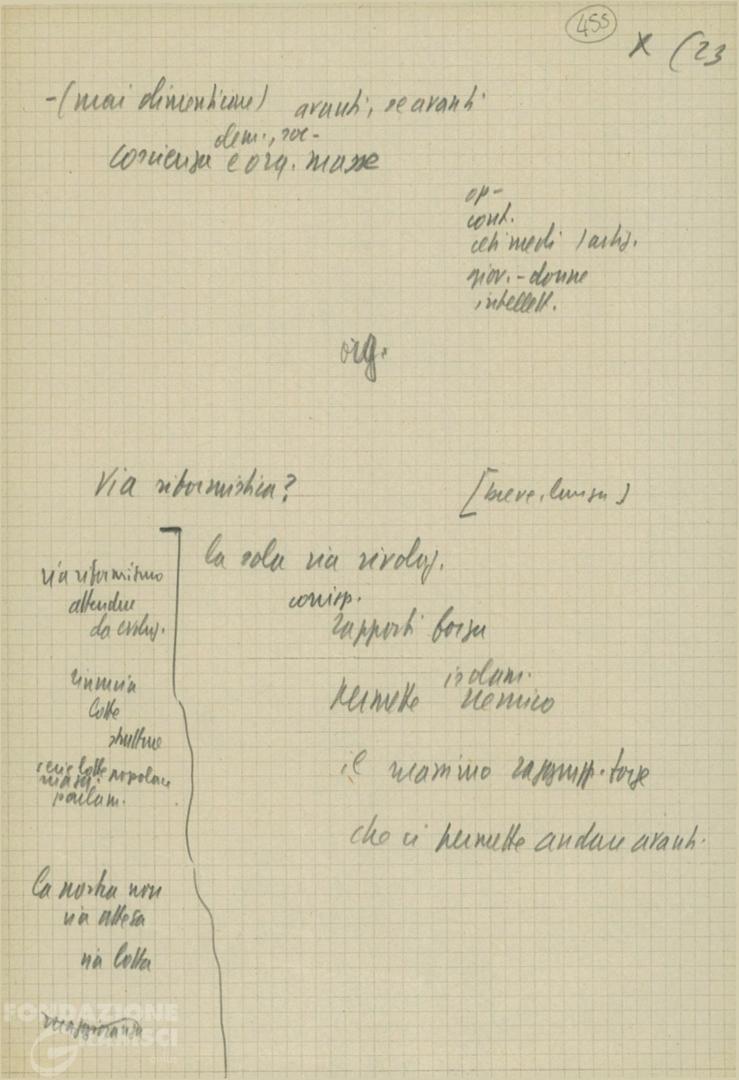 455
X (23
-(mai dimenticare) avanti, se avanti
dem., soc-
coscienza e org. masse
op-
cont.
ceti medi
giov. - donne
intellett.
org.
Via riformistica?
[breve,
la sola via rivoluz.
corrisp.
rapporti forza
isolam.
permette nemico
il massimo raggrupp. forze
che ci permette andare avanti.
via riformismo
attendere
da evoluz.
rinuncia
lotte
strutture
lotte popolare
parlam.
la nostra non
via attesa
via lotta
maggioranza
FONDAZIONE
GRAMSCI